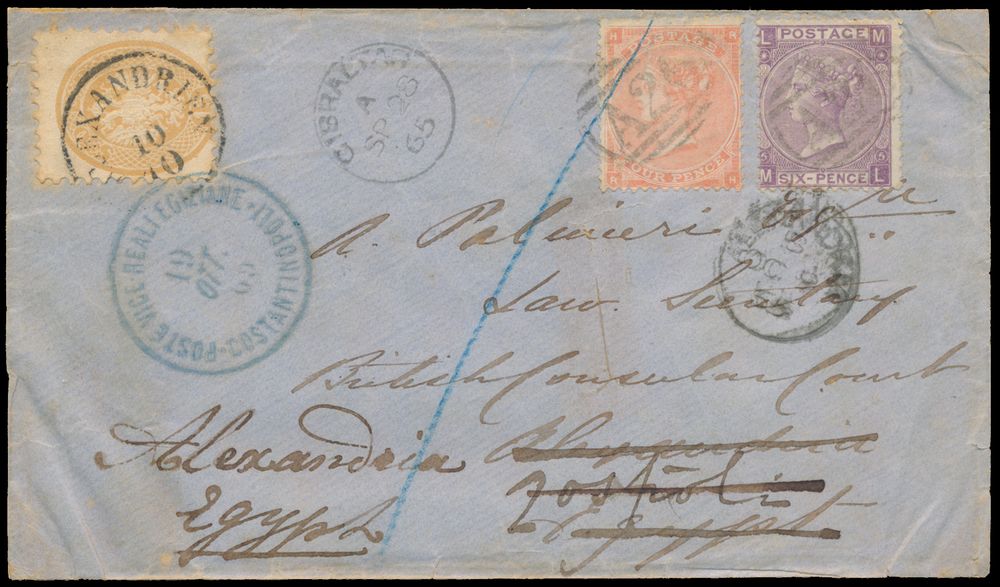 ALEXANDRIEN
10
10
GIBRALTAR
A
SP 28
65
H R
POSTAGE
FOUR PENCE
R H
A26
L M
POSTAGE
SIX-PENCE
M L
5 5
POSTE VICE-REALI EGIZIANE
COSTANTINOPOLI
19
OTT.
ALEXANDRIA
OC
A. Palmieri Esqre
Law Secretary
British Consular Court
Alexandria Alexandria
Egypt Egypt